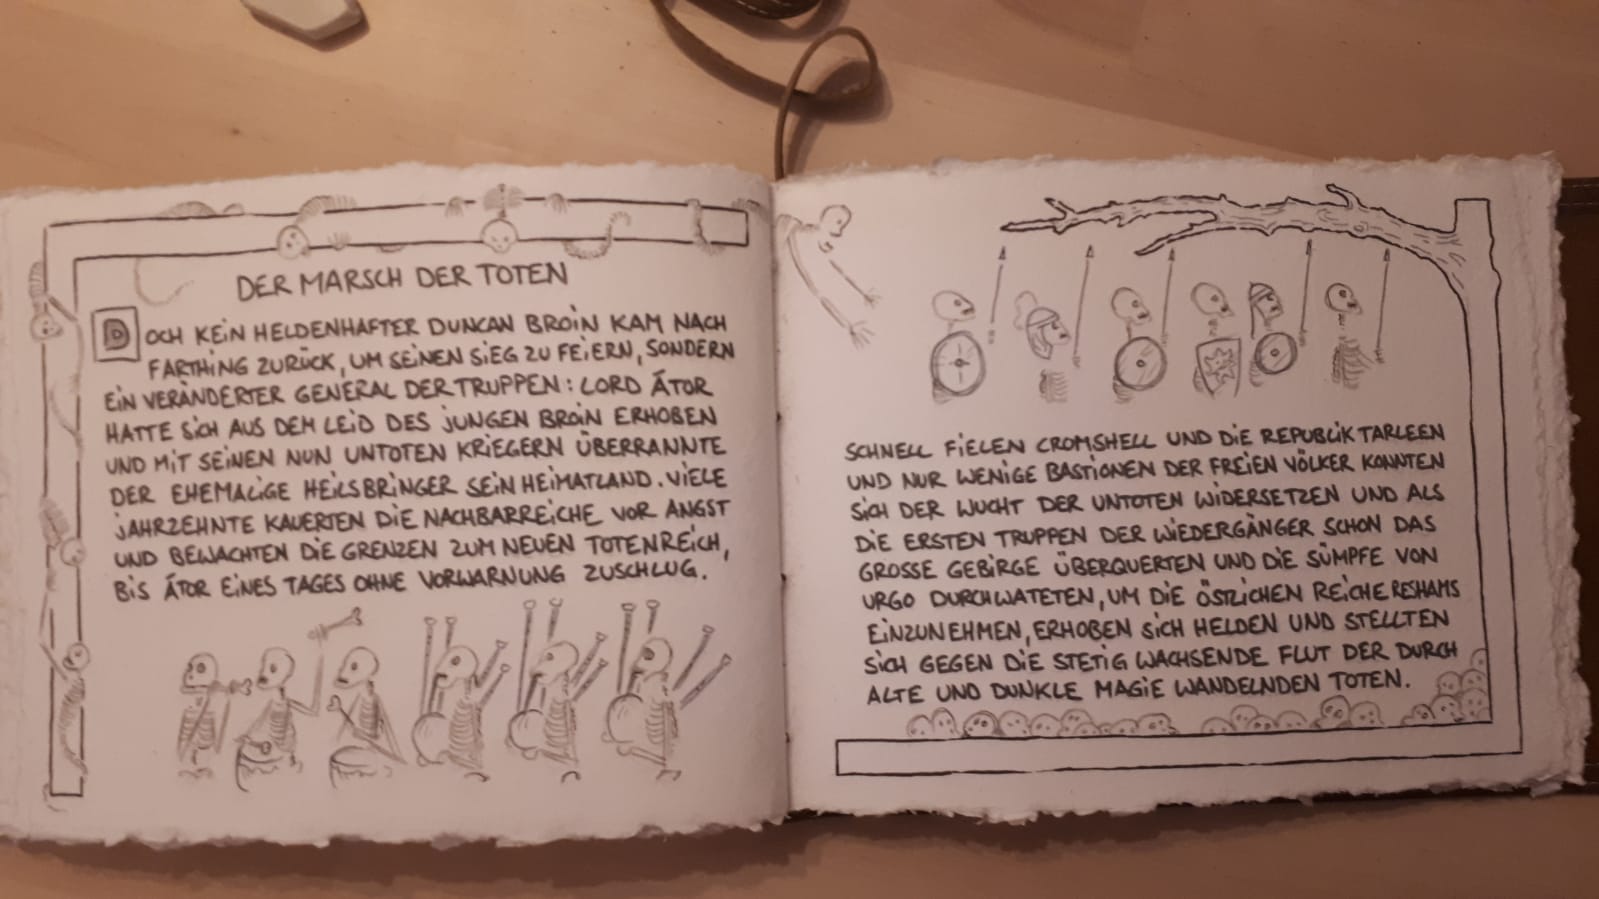 DER MARSCH DER TOTEN
DOCH KEIN HELDENHAFTER DUNCAN BROIN KAM NACH
FARTHING ZURÜCK, UM SEINEN SIEG ZU FEIERN, SONDERN
EIN VERÄNDERTER GENERAL DER TRUPPEN: LORD ÄTOR
HATTE SICH AUS DEM LEID DES JUNGEN BROIN ERHOBEN
UND MIT SEINEN NUN UNTOTEN KRIEGERN ÜBERRANNTE
DER EHEMALIGE HEILSBRINGER SEIN HEIMATLAND. VIELE
JAHRZEHNTE KAUERTEN DIE NACHBARREICHE VOR ANGST
UND BEWACHTEN DIE GRENZEN ZUM NEUEN TOTENREICH,
BIS ÄTOR EINES TAGES OHNE VORWARNUNG ZUSCHLUG.
SCHNELL FIELEN CROMSHELL UND DIE REPUBLIK TARLEEN
UND NUR WENIGE BASTIONEN DER FREIEN VÖLKER KONNTEN
SICH DER WUCHT DER UNTOTEN WIDERSETZEN UND ALS
DIE ERSTEN TRUPPEN DER WIEDERGÄNGER SCHON DAS
GROSSE GEBIRGE ÜBERQUERTEN UND DIE SÜMPFE VON
URGO DURCHWATETEN, UM DIE ÖSTLICHEN REICHE RESHAMS
EINZUNEHMEN, ERHOBEN SICH HELDEN UND STELLTEN
SICH GEGEN DIE STETIG WACHSENDE FLUT DER DURCH
ALTE UND DUNKLE MAGIE WANDELNDEN TOTEN.